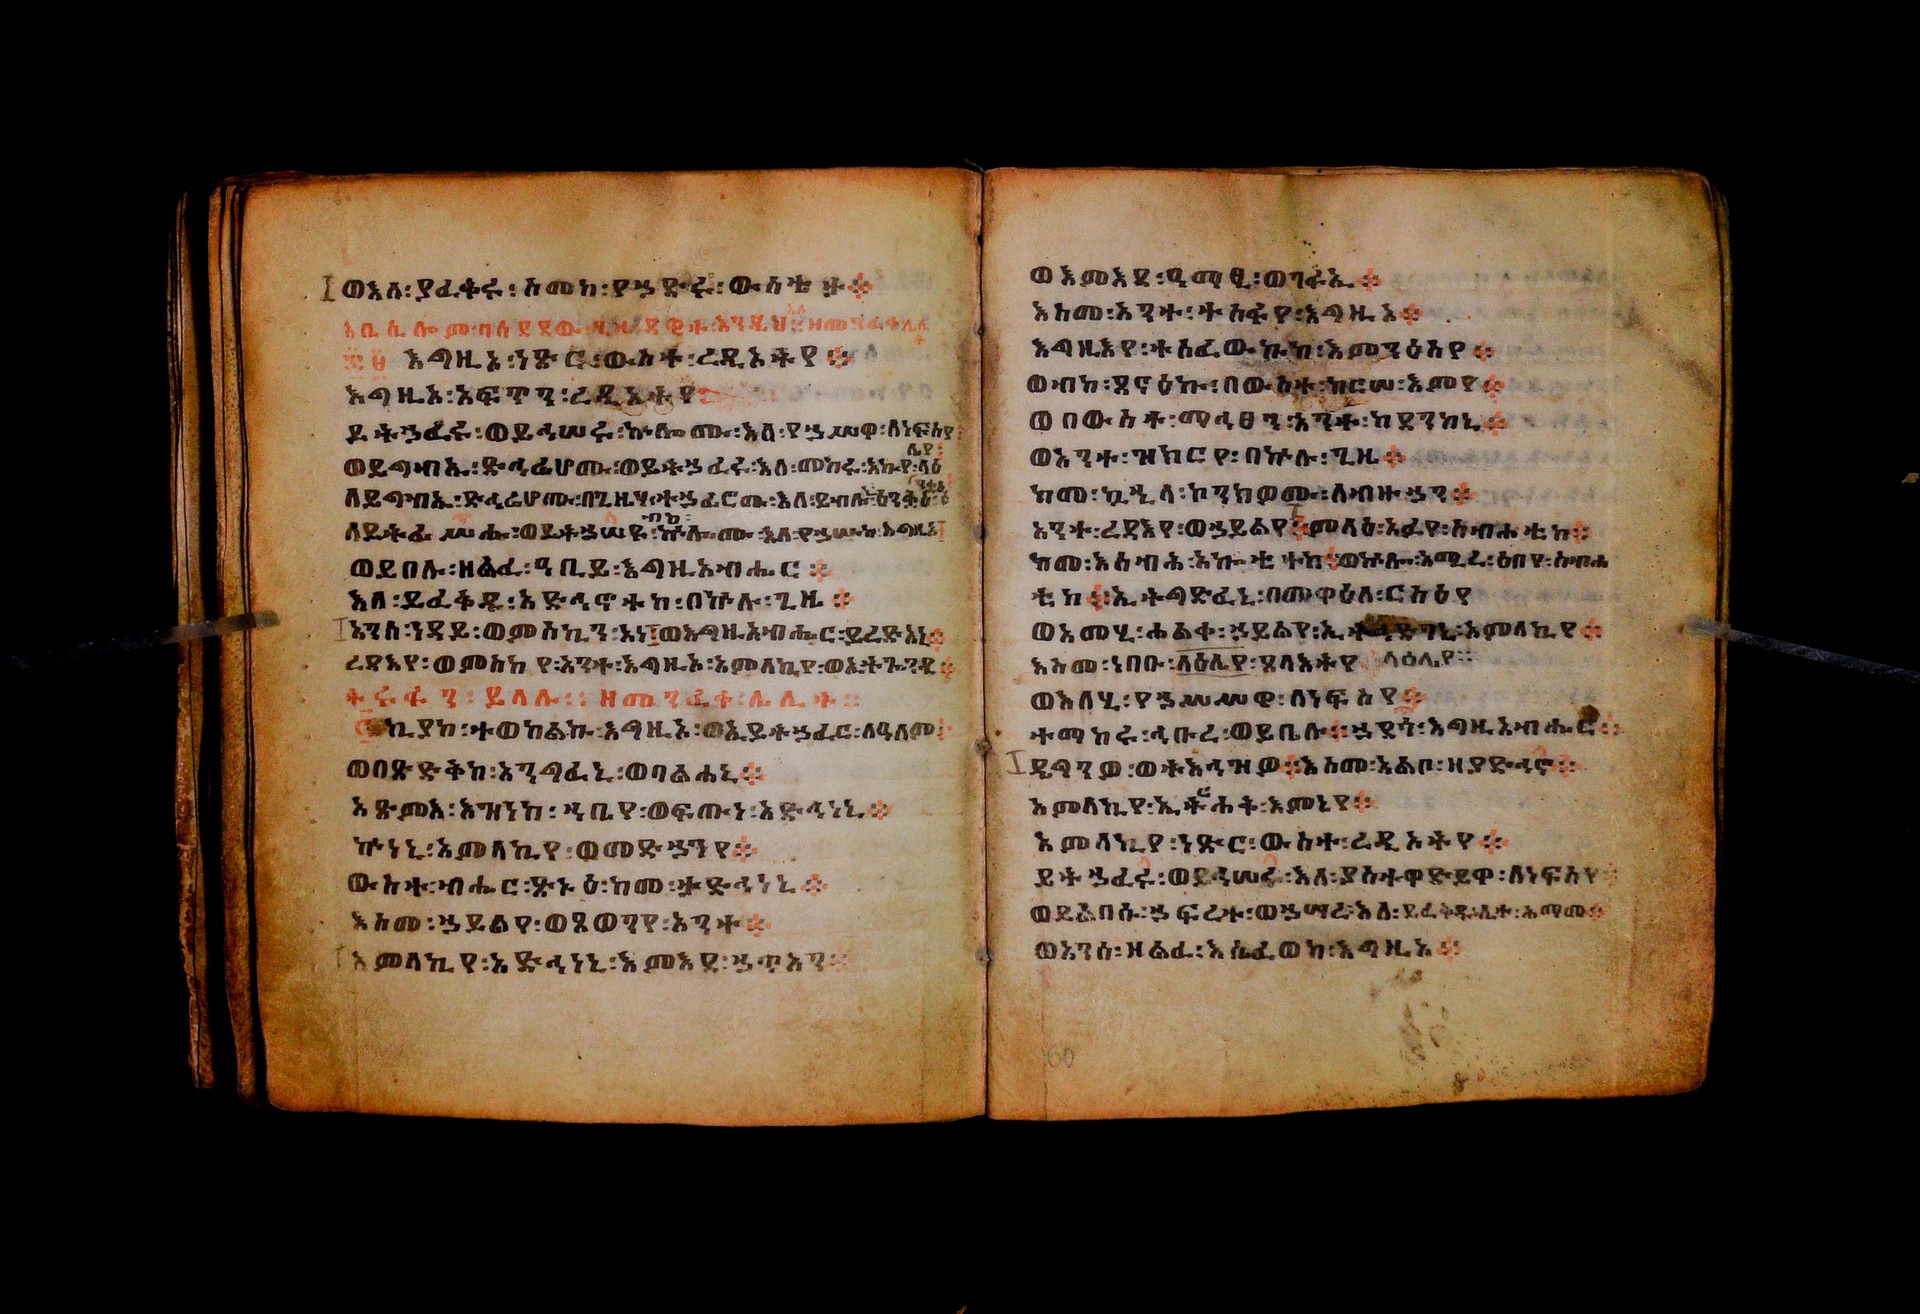 ወእለ፡ያፈቅሩ፡ስመከ፡የኀድሩ፡ውስቴታ፨
፷፱ እግዚኦ፡ነጽር፡ውስተ፡ረዲኦትየ፨
እግዚኦ፡አፍጥን፡ረዲኦትየ
ይትኀፈሩ፡ወይኀሠሩ፡ኵሎሙ፡እለ፡የኀሥዋ፡ለነፍስየ፡
ወይግብኡ፡ድኅሬሆሙ፡ወይትኀፈሩ፡እለ፡መከሩ፡እኩየ፡ላዕሌየ፡
ለይግብኡ፡ድኅሬሆሙ፡በጊዜሃ፡ተኀፊሮሙ፡እለ፡ይብሉኒ፡እንቋዕ፡
ለይትፈሥሑ፡ወይትኀሠዩ፡ብከ፡ኵሎሙ፡እለ፡የኀሡከ፡እግዚኦ
ወይበሉ፡ዘልፈ፡ዓቢይ፡እግዚአብሔር፨
እለ፡ይፈቅዱ፡አድኅኖተከ፡በኵሉ፡ጊዜ፨
አንሰ፡ነዳይ፡ወምስኪን፡አነ፡ወእግዚአብሔር፡ይረድአኒ፨
ረዳእየ፡ወምስካየ፡አንተ፡እግዚኦ፡አምላኪየ፡ወኢትጐንዲ፨
ተሩፋን፡ይላሉ፡፡ዘመንፈቀ፡ሌሊት፡፡
ኪያከ፡ተወከልኩ፡እግዚኦ፡ወኢይትኀፈር፡ለዓለም፡
ወበጽድቅከ፡አንግፈኒ፡ወባልሐኒ፨
አጽምእ፡እዝነከ፡ኀቤየ፡ወፍጡነ፡አድኅነኒ፨
ኩነኒ፡አምላኪየ፡ወመድኀንየ፨
ውስተ፡ብሔር፡ጽኑዕ፡ከመ፡ታድኅነኒ፨
እስመ፡ኀይልየ፡ወጸወንየ፡አንተ፨
አምላኪየ፡አድኅነኒ፡እምእደ፡ኀጥአን፨
ወእምእደ፡ዓማፂ፡ወገፋኢ፨
እስመ፡አንተ፡ተስፋየ፡እግዚኦ፨
እግዚእየ፡ተሰፈውኩከ፡እምንዕስየ፨
ወብከ፡ጸናዕኩ፡በውስተ፡ከርሡ፡እምየ፨
ወበውስተ፡ማኅፀን፡አንተ፡ከደንከኒ፨
ወአንተ፡ዝክርየ፡በኵሉ፡ጊዜ፨
ከመ፡ኳሂላ፡ኮንክዎሙ፡ለብዙኃን፨
አንተ፡ረዳእየ፡ወኀይልየ፨ምላዕ፡አፈየ፡ስብሐቲከ፨
ከመ፡እሰብሕ፡አኰቴተከ፨ወኵሎ፡አሚረ፡ዕበየ፡ስብሐ
ቲከ፨ኢትግድፈኒ፡በመዋዕለ፡ርስዕየ
ወአመሂ፡ሐልቀ፡ኀይልየ፡ኢትኅድገኒ፡አምላኪየ፨
እስመ፡ነበቡ፡ላዕሌየ፡ጸላእትየ፡ላዕሌየ፡፡
ወእለሂ፡የኀሥሥዋ፡ለነፍስየ፨
ተማከሩ፡ኅቡረ፡ወይቤሉ፨ኀደጎ፡እግዚአብሔር፨
ዴግንዎ፡ወትእኅዝዎ፨እስመ፡አልቦ፡ዘያድኅኖ፨
አምላኪየ፡ኢትርሐቅ፡እምኔየ፨
አምላኪየ፡ነጽር፡ውስተ፡ረዲኦትየ፨
ይትኀፈሩ፡ወይኅሠሩ፡እለ፡ያስተዋድይዋ፡ለነፍስየ፡
ወይልበሱ፡ኀፍረተ፡ወኀሣረ፡እለ፡ይፈቅዱ፡ሊተ፡ሕማመ፨
ወአንሰ፡ዘልፈ፡እሴፈወከ፡እግዚኦ፨
60